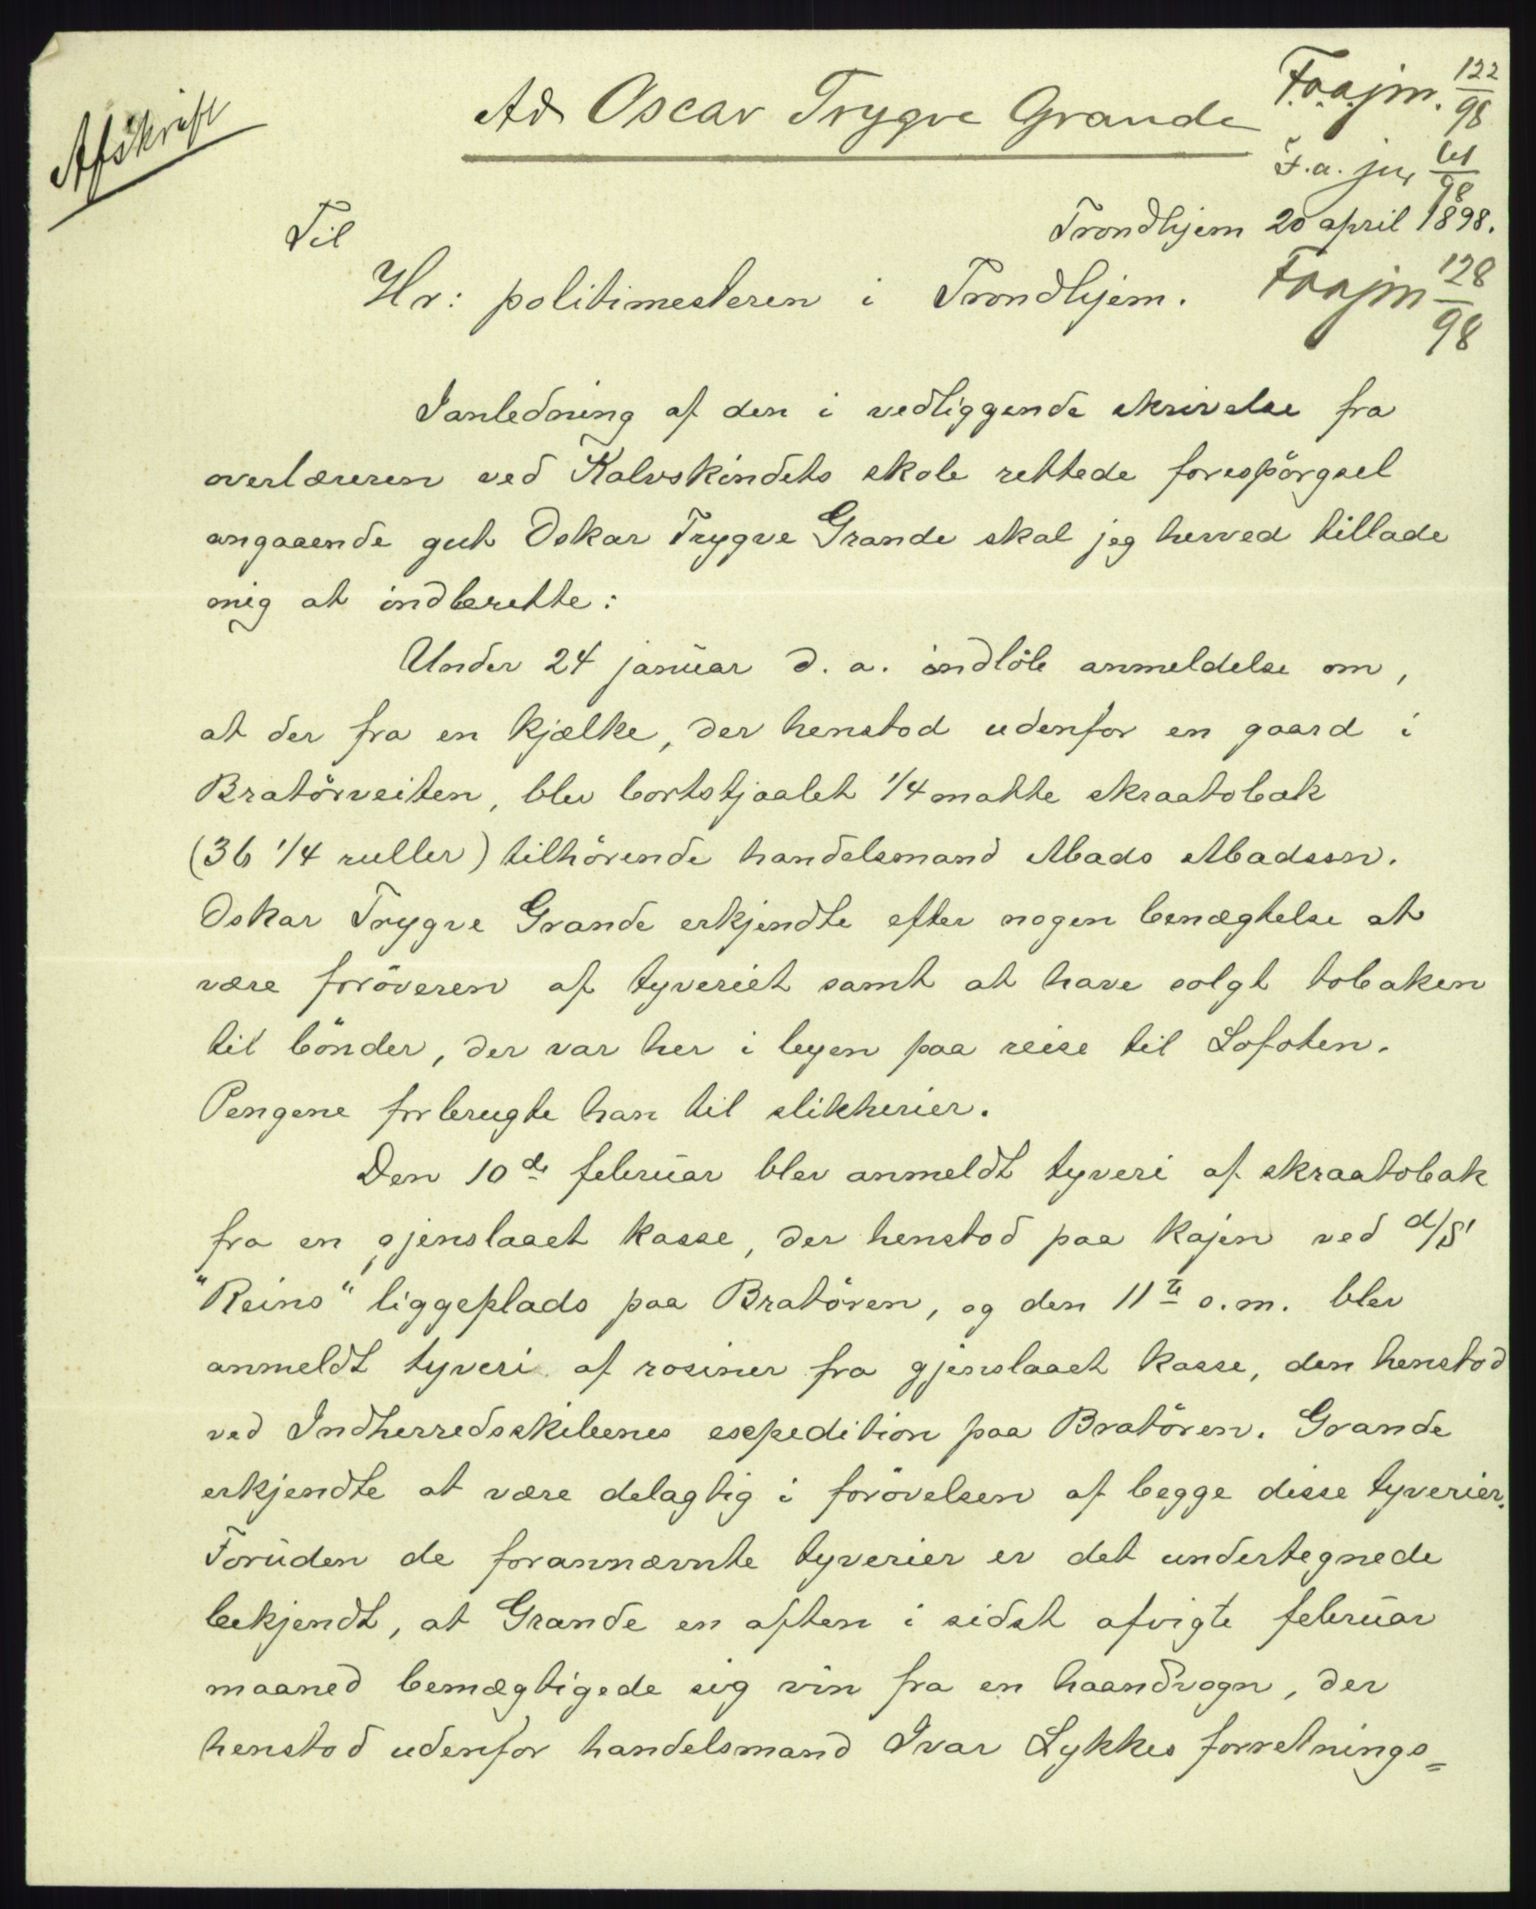 Afskrift
Ad Oscar Trygve Grande
F.a.a.jm. 122/98
F.a. jn. 61/98
Trondhjem 20 april 1898.
Til
Hr: politimesteren i Trondhjem.
Faajm 128/98
Ianledning af den i vedliggende skrivelse fra
overlæreren ved Kalvskindets skole rettede forespörgsel
angaaende gut Oskar Trygve Grande skal jeg herved tillade
mig at indberette:
Under 24 januar d. a. indlöb anmeldelse om,
at der fra en kjælke, der henstod udenfor en gaard i
Bratörveiten, blev bortstjaalet 1/4 matte skraatobak
(36 1/4 ruller) tilhörende handelsmand Mads Madsen.
Oskar Trygve Grande erkjendte efter nogen benægtelse at
være foröveren af tyveriet samt at have solgt tobaken
til bönder, der var her i byen paa reise til Lofoten.
Pengene forbrugte han til slikherier.
Den 10de februar blev anmeldt tyveri af skraatobak
fra en gjenslaaet kasse, der henstod paa kajen ved d/S
"Reins" liggeplads paa Bratören, og den 11te s.m. blev
anmeldt tyveri af rosiner fra gjenslaaet kasse, den henstod
ved Indherredsskibenes expedition paa Bratören. Grande
erkjendte at være delagtig i forövelsen af begge disse tyverier.
Foruden de forannævnte tyverier er det undertegnede
bekjendt, at Grande en aften i sidst afvigte februar
maaned bemægtigede sig vin fra en haandvogn, der
henstod udenfor handelsmand Ivar Lykkes forretnings=